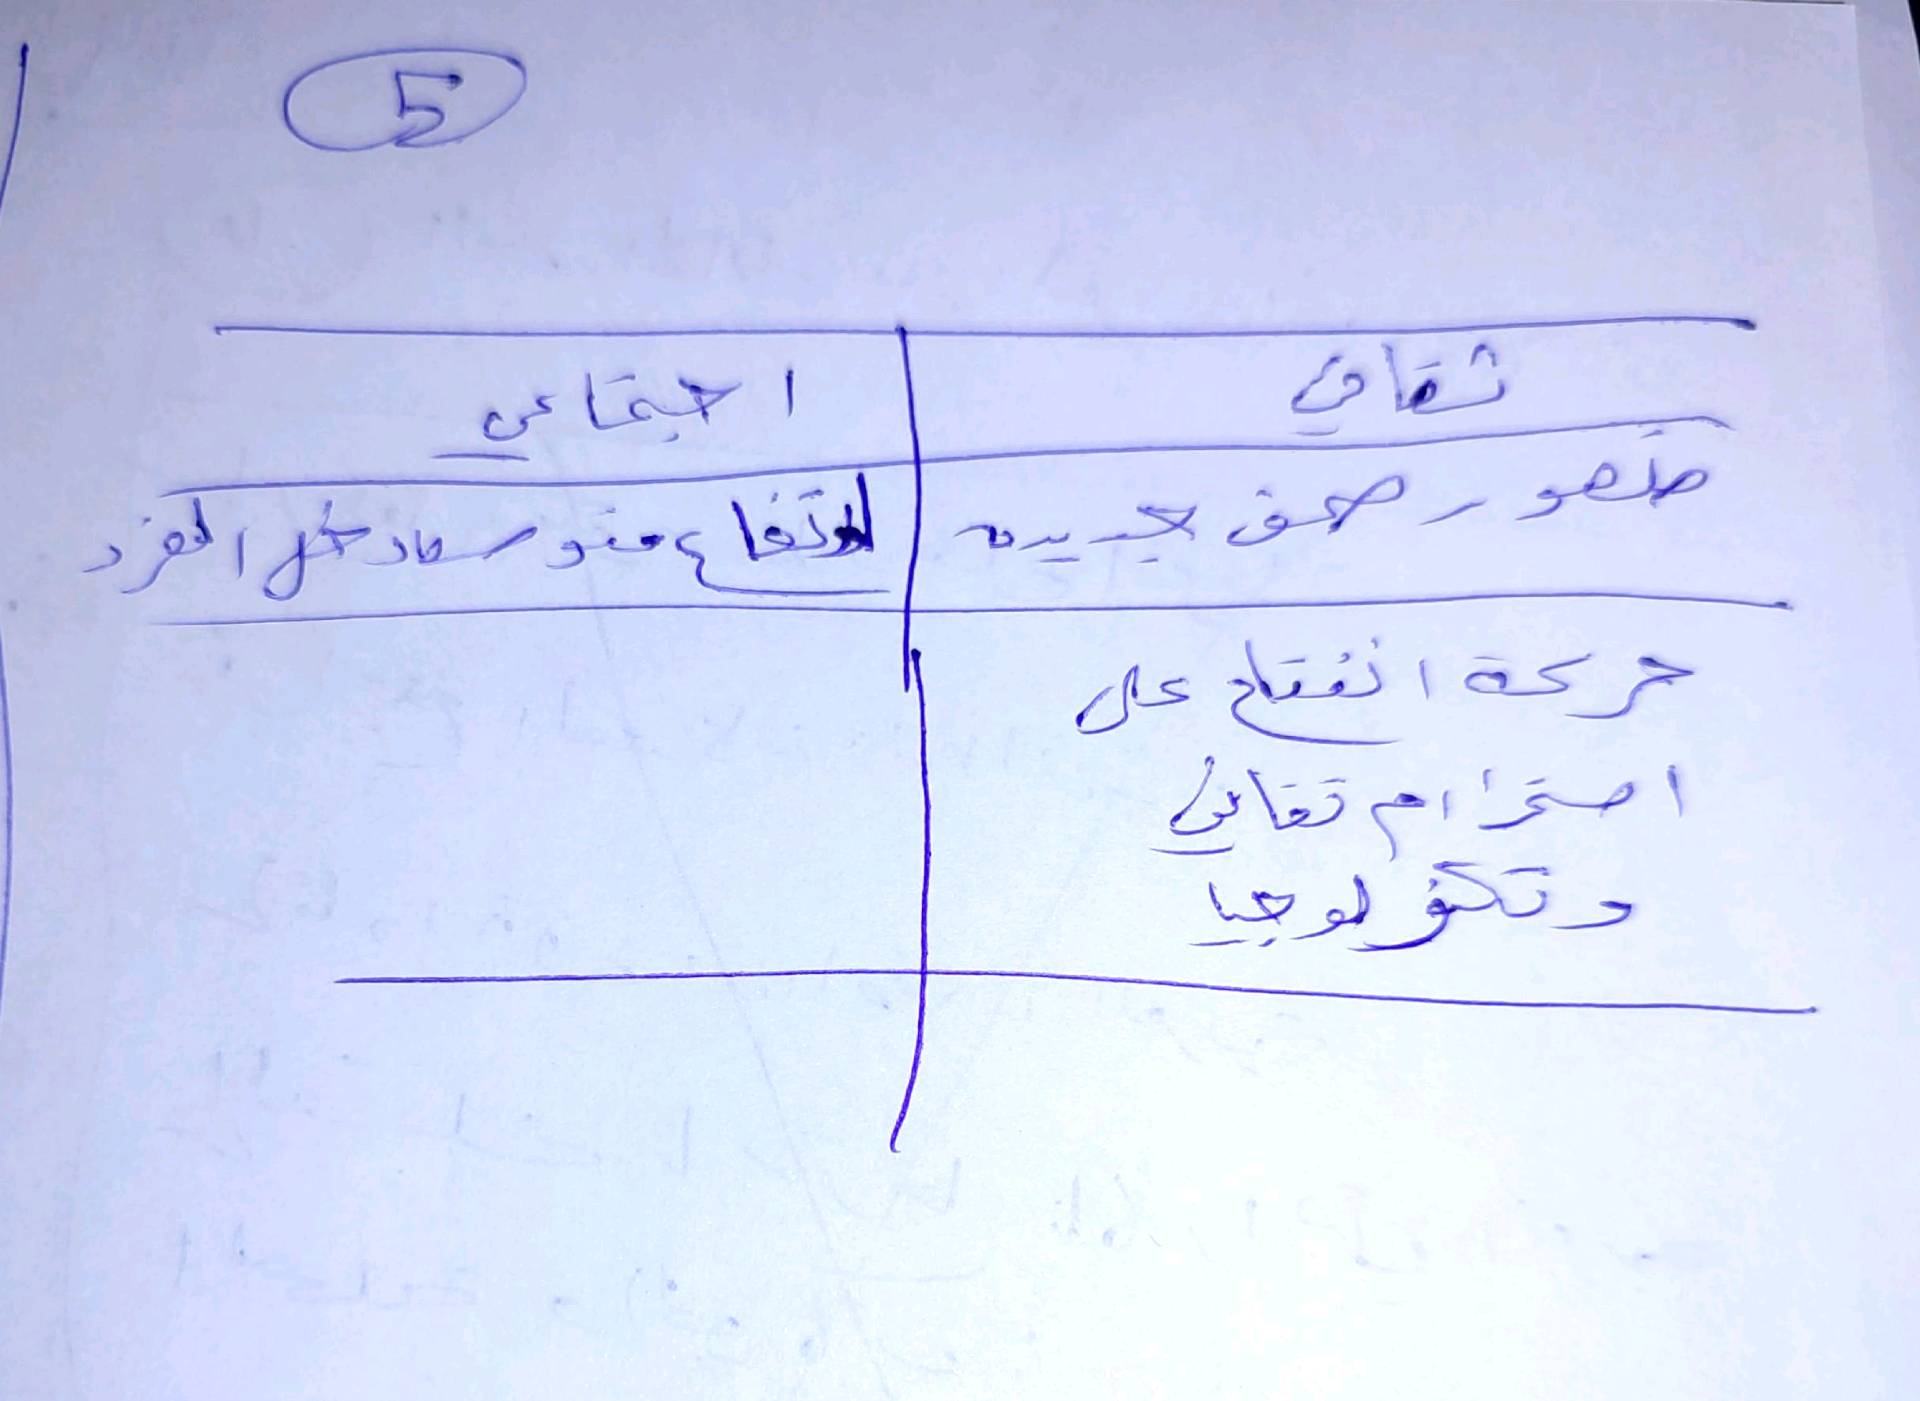 5
ثقافي اجتماعي
ظهور صحف جديده ارتفاع متوسط دخل الفرد
حركة انفتاح على
احترام ثقافي
وتكنولوجيا